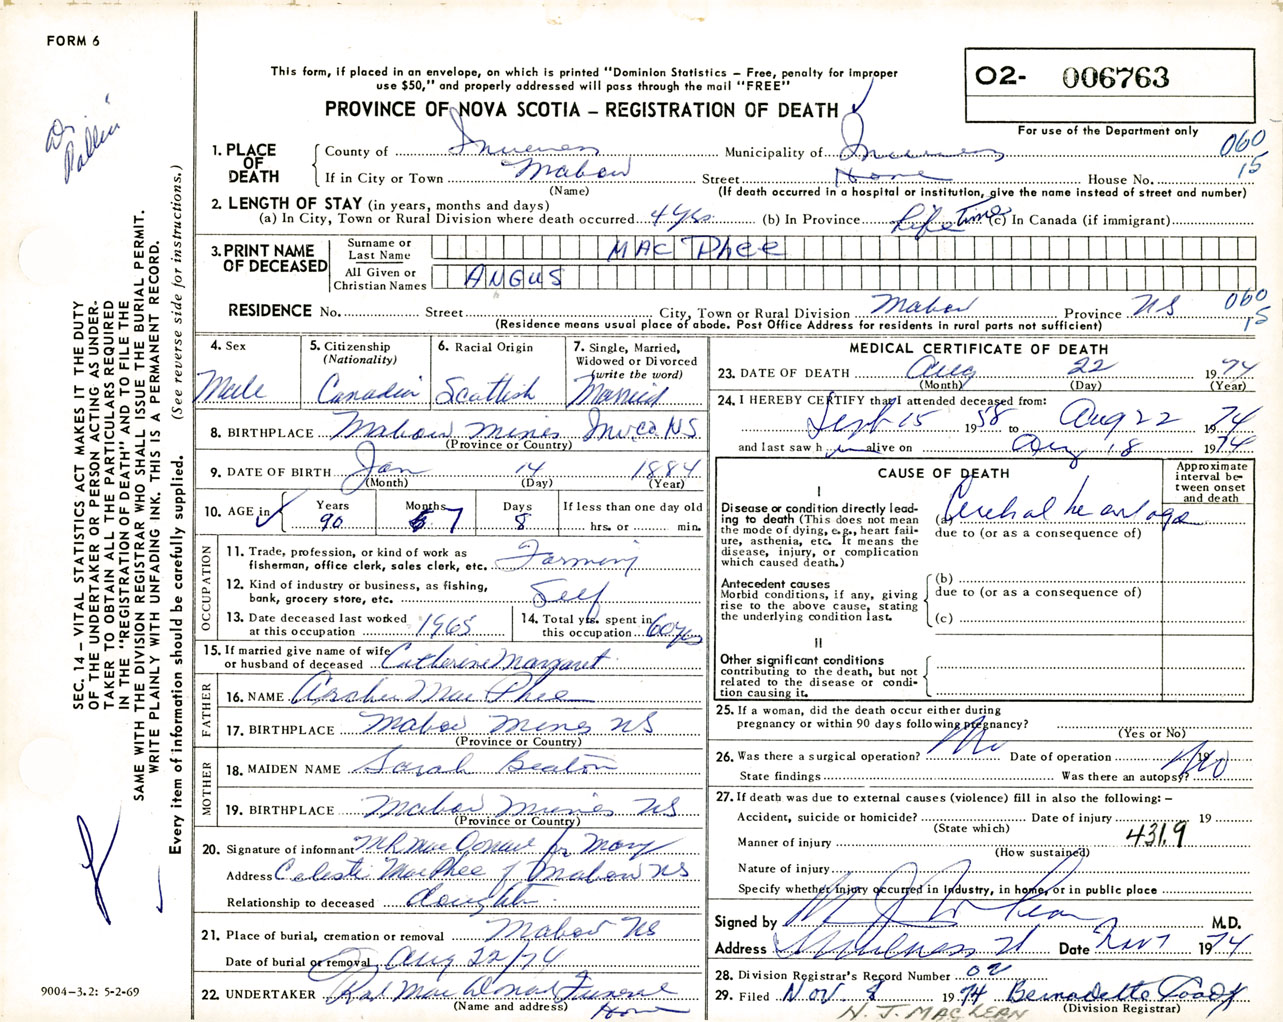 FORM 6
Dr.
O2- 006763
For use of the Department only
This form, if placed in an envelope, on which is printed "Dominion Statistics – Free, penalty for improper
use $50," and properly addressed will pass through the mail "FREE"
PROVINCE OF NOVA SCOTIA – REGISTRATION OF DEATH
SEC. 14 – VITAL STATISTICS ACT MAKES IT THE DUTY
OF THE UNDERTAKER OR PERSON ACTING AS UNDER-
TAKER TO OBTAIN ALL THE PARTICULARS REQUIRED
IN THE "REGISTRATION OF DEATH" AND TO FILE THE
SAME WITH THE DIVISION REGISTRAR WHO SHALL ISSUE THE BURIAL PERMIT.
WRITE PLAINLY WITH UNFADING INK. THIS IS A PERMANENT RECORD.
Every item of information should be carefully supplied. (See reverse side for instructions.)
1. PLACE OF DEATH County of Inverness Municipality of Inverness 060
If in City or Town Mabou Street Home House No. 15
(Name) (If death occurred in a hospital or institution, give the name instead of street and number)
2. LENGTH OF STAY (in years, months and days)
(a) In City, Town or Rural Division where death occurred 4 yrs (b) In Province Life Time (c) In Canada (if immigrant)
3. PRINT NAME OF DECEASED Surname or Last Name MAC Phee
All Given or Christian Names ANGUS
RESIDENCE No. Street City, Town or Rural Division Mabou Province NS 060 15
(Residence means usual place of abode. Post Office Address for residents in rural parts not sufficient)
4. Sex 5. Citizenship (Nationality) 6. Racial Origin 7. Single, Married, Widowed or Divorced (write the word)
Male Canadian Scottish Married
8. BIRTHPLACE Mabou Mines Inv. Co NS
(Province or Country)
9. DATE OF BIRTH Jan 14 1884
(Month) (Day) (Year)
10. AGE in Years Months Days If less than one day old
90 7 8 hrs. or min.
OCCUPATION
11. Trade, profession, or kind of work as
fisherman, office clerk, sales clerk, etc. Farming
12. Kind of industry or business, as fishing,
bank, grocery store, etc. Self
13. Date deceased last worked
at this occupation 1965
14. Total yrs. spent in
this occupation 60 yrs
15. If married give name of wife
or husband of deceased Catherine Margaret
FATHER
16. NAME Archie MacPhee
17. BIRTHPLACE Mabou Mines NS
(Province or Country)
MOTHER
18. MAIDEN NAME Sarah Beaton
19. BIRTHPLACE Mabou Mines NS
(Province or Country)
20. Signature of informant MR MacDonald for Mary
Address Celeste MacPhee of Mabou NS
Relationship to deceased daughter
21. Place of burial, cremation or removal Mabou NS
Date of burial or removal Aug 22/74
22. UNDERTAKER MacDonald Funeral
(Name and address) Home
MEDICAL CERTIFICATE OF DEATH
23. DATE OF DEATH Aug 22 1974
(Month) (Day) (Year)
24. I HEREBY CERTIFY that I attended deceased from:
Sept 15 1958 to Aug 22 1974
and last saw h im alive on Aug 18 1974
CAUSE OF DEATH
Approximate interval between onset and death
I
Disease or condition directly lead-
ing to death (This does not mean
the mode of dying, e.g., heart fail-
ure, asthenia, etc. It means the
disease, injury, or complication
which caused death.)
(a) Cerebral
due to (or as a consequence of)
Antecedent causes
Morbid conditions, if any, giving
rise to the above cause, stating
the underlying condition last.
(b)
due to (or as a consequence of)
(c)
II
Other significant conditions
contributing to the death, but not
related to the disease or condi-
tion causing it.
25. If a woman, did the death occur either during
pregnancy or within 90 days following pregnancy?
(Yes or No)
26. Was there a surgical operation? No Date of operation 19
State findings Was there an autopsy? No
27. If death was due to external causes (violence) fill in also the following: –
Accident, suicide or homicide? Date of injury 19
(State which)
Manner of injury 431.9
(How sustained)
Nature of injury
Specify whether injury occurred in industry, in home, or in public place
Signed by M.D.
Address Inverness Date Nov 7 1974
28. Division Registrar's Record Number 02
29. Filed NOV. 8 1974 Bernadette
(Division Registrar)
N. J. MACLEAN
9004-3.2: 5-2-69